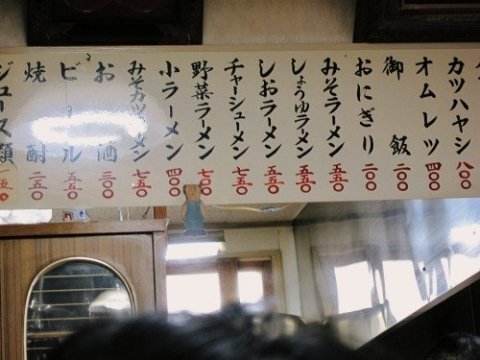 カツハヤシ 八〇〇
オムレツ 六〇〇
御飯 二〇〇
おにぎり 二〇〇
みそラーメン 五五〇
しょうゆラーメン 五五〇
しおラーメン 五五〇
チャーシューメン 七五〇
野菜ラーメン 七〇〇
小ラーメン 四〇〇
みそカツラーメン 七五〇
お酒 三〇〇
ビール 五五〇
焼酎 二五〇
ジュース類 一五〇